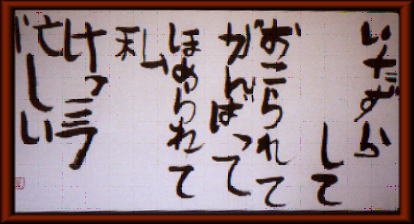 いたずら
して
おこられて
がんばって
ほめられて
私
けっこう
忙しい